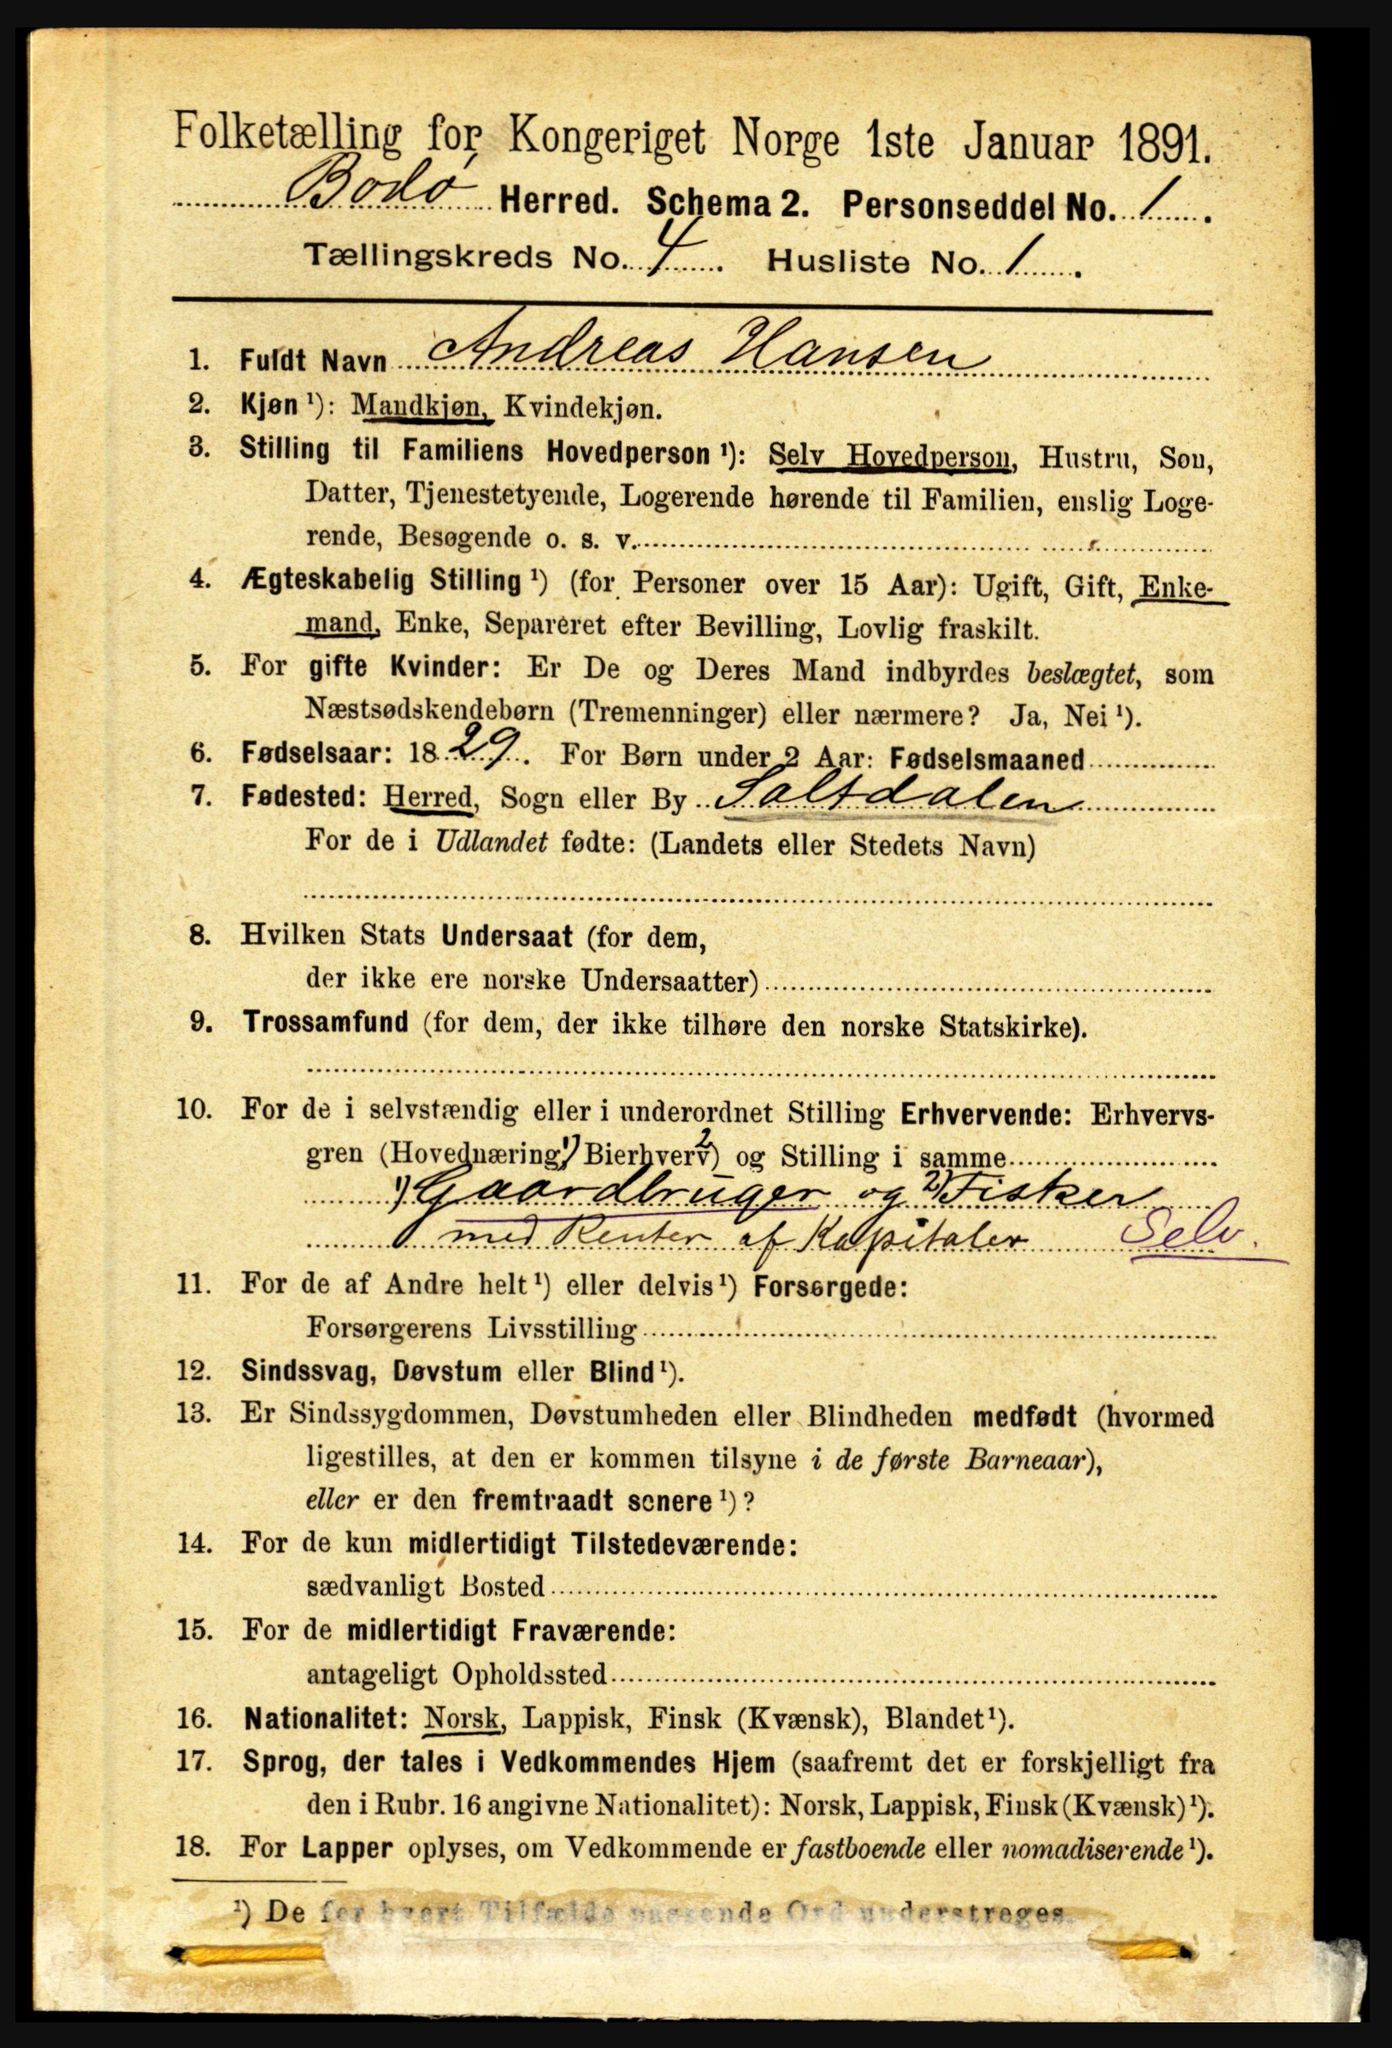 Folketælling for Kongeriget Norge 1ste Januar 1891.
Bodø Herred. Schema 2. Personseddel No. 1.
Tællingskreds No. 4. Husliste No. 1.
1. Fuldt Navn Andreas Hansen
2. Kjøn ¹): Mandkjøn, Kvindekjøn.
3. Stilling til Familiens Hovedperson ¹): Selv Hovedperson, Hustru, Søn,
Datter, Tjenestetyende, Logerende hørende til Familien, enslig Loge-
rende, Besøgende o. s. v.
4. Ægteskabelig Stilling ¹) (for Personer over 15 Aar): Ugift, Gift, Enke-
mand, Enke, Separeret efter Bevilling, Lovlig fraskilt.
5. For gifte Kvinder: Er De og Deres Mand indbyrdes beslægtet, som
Næstsødskendebørn (Tremenninger) eller nærmere? Ja, Nei ¹).
6. Fødselsaar: 1829. For Børn under 2 Aar: Fødselsmaaned
7. Fødested: Herred, Sogn eller By Saltdalen
For de i Udlandet fødte: (Landets eller Stedets Navn)
8. Hvilken Stats Undersaat (for dem,
der ikke ere norske Undersaatter)
9. Trossamfund (for dem, der ikke tilhøre den norske Statskirke).
10. For de i selvstændig eller i underordnet Stilling Erhvervende: Erhvervs-
gren (Hovednæring 1) Bierhverv 2) og Stilling i samme
1) Gaardbruger og 2) Fisker
med Renter af Kapitaler Selv.
11. For de af Andre helt ¹) eller delvis ¹) Forsørgede:
Forsørgerens Livsstilling
12. Sindssvag, Døvstum eller Blind ¹).
13. Er Sindssygdommen, Døvstumheden eller Blindheden medfødt (hvormed
ligestilles, at den er kommen tilsyne i de første Barneaar),
eller er den fremtraadt senere ¹)?
14. For de kun midlertidigt Tilstedeværende:
sædvanligt Bosted
15. For de midlertidigt Fraværende:
antageligt Opholdssted
16. Nationalitet: Norsk, Lappisk, Finsk (Kvænsk), Blandet ¹).
17. Sprog, der tales i Vedkommendes Hjem (saafremt det er forskjelligt fra
den i Rubr. 16 angivne Nationalitet): Norsk, Lappisk, Finsk (Kvænsk) ¹).
18. For Lapper oplyses, om Vedkommende er fastboende eller nomadiserende ¹).
¹) De for hvert Tilfælde passende Ord understreges.